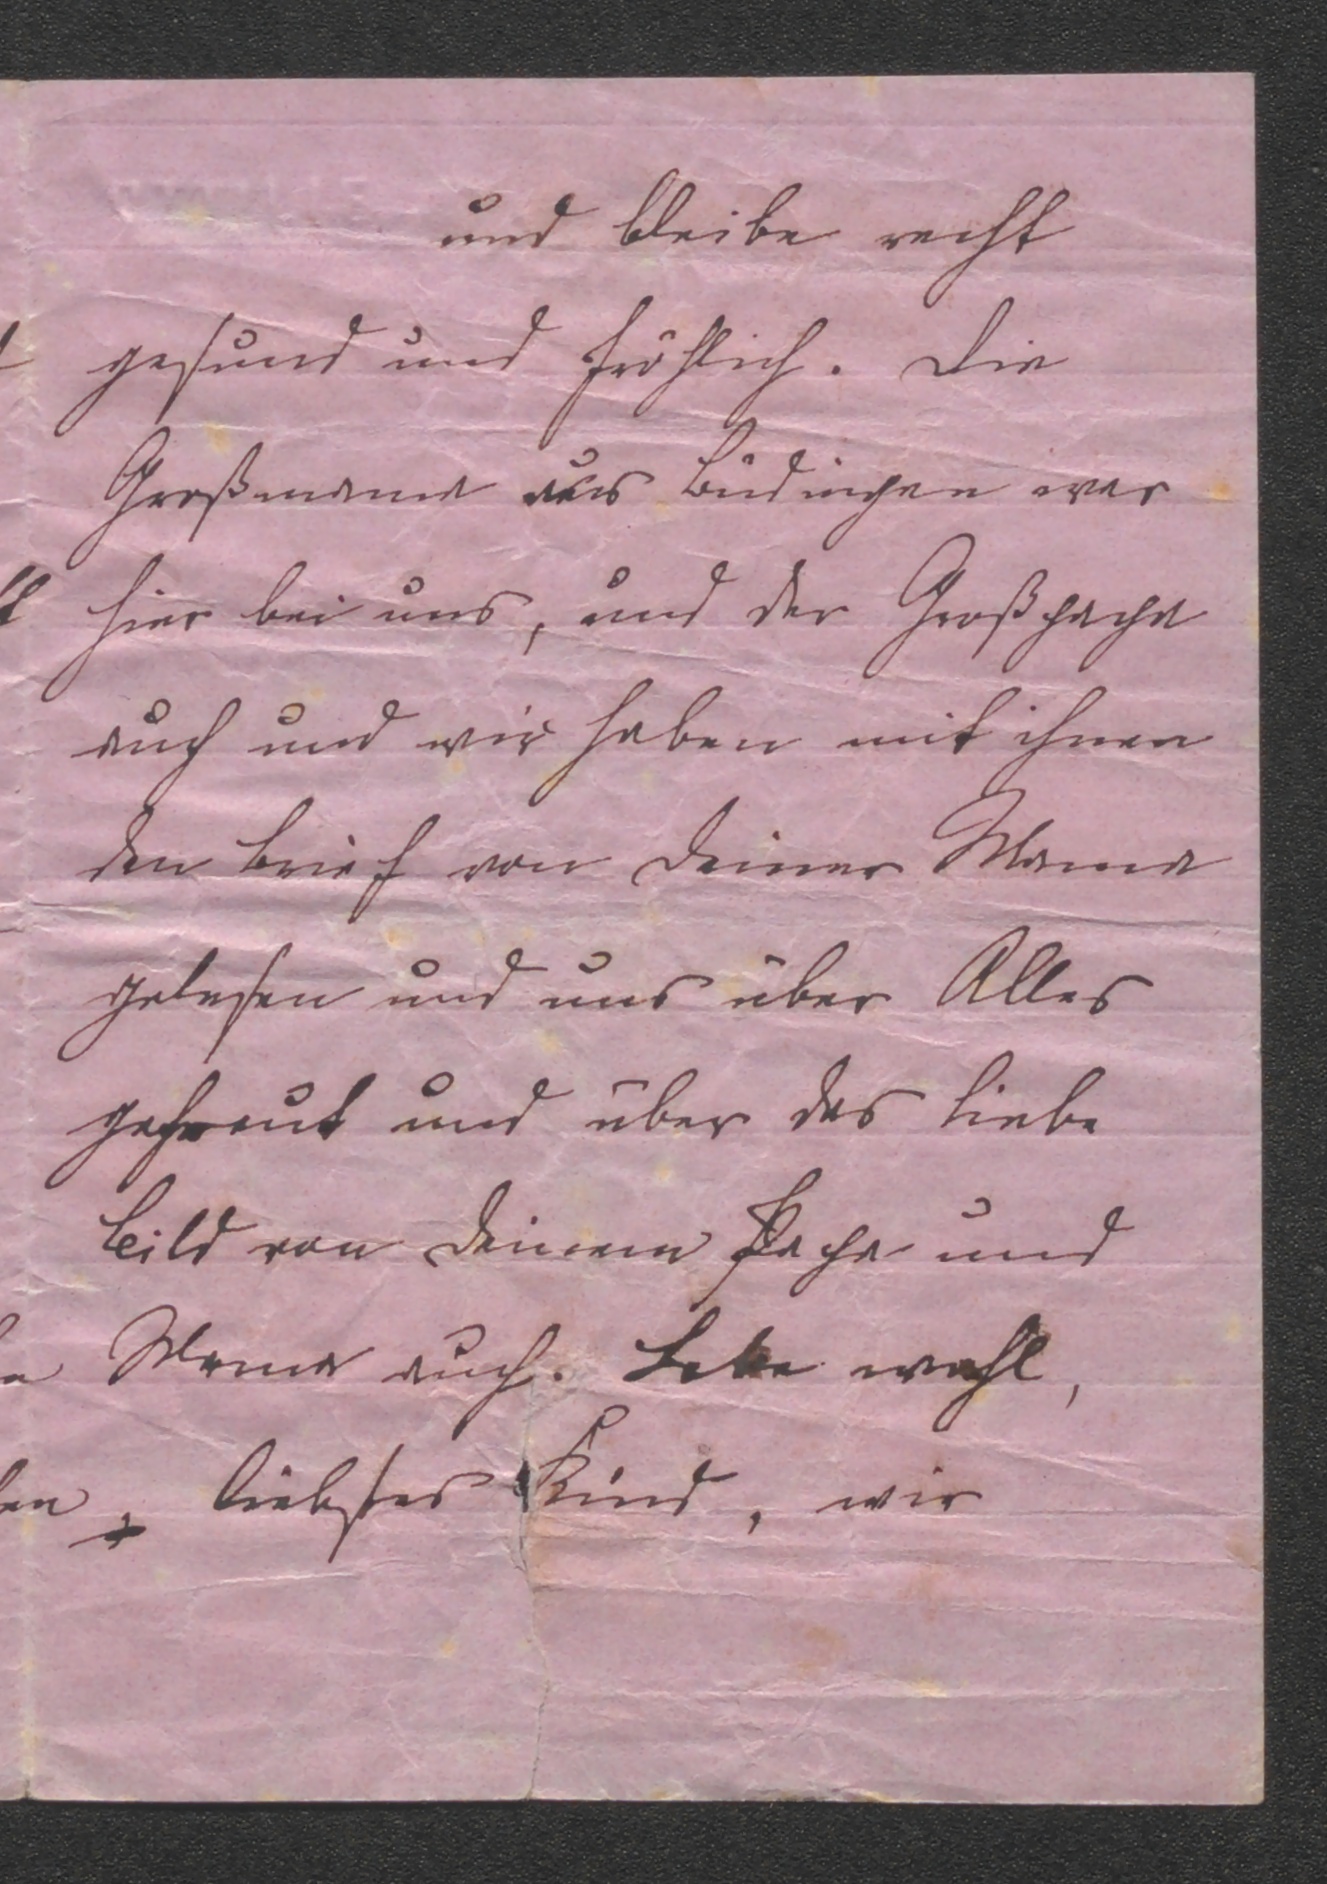 und bleibe recht
gesund und fröhlich. Die
Großmama aus Büdingen war
hier bei uns, und der Großpapa
auch und wir haben mit ihnen
den Brief von Deiner Mama
gelesen und uns über Alles
gefreut und über das liebe
Bild von Deinem Papa und
Mama auch. Lebe wohl,
liebstes Kind, wir